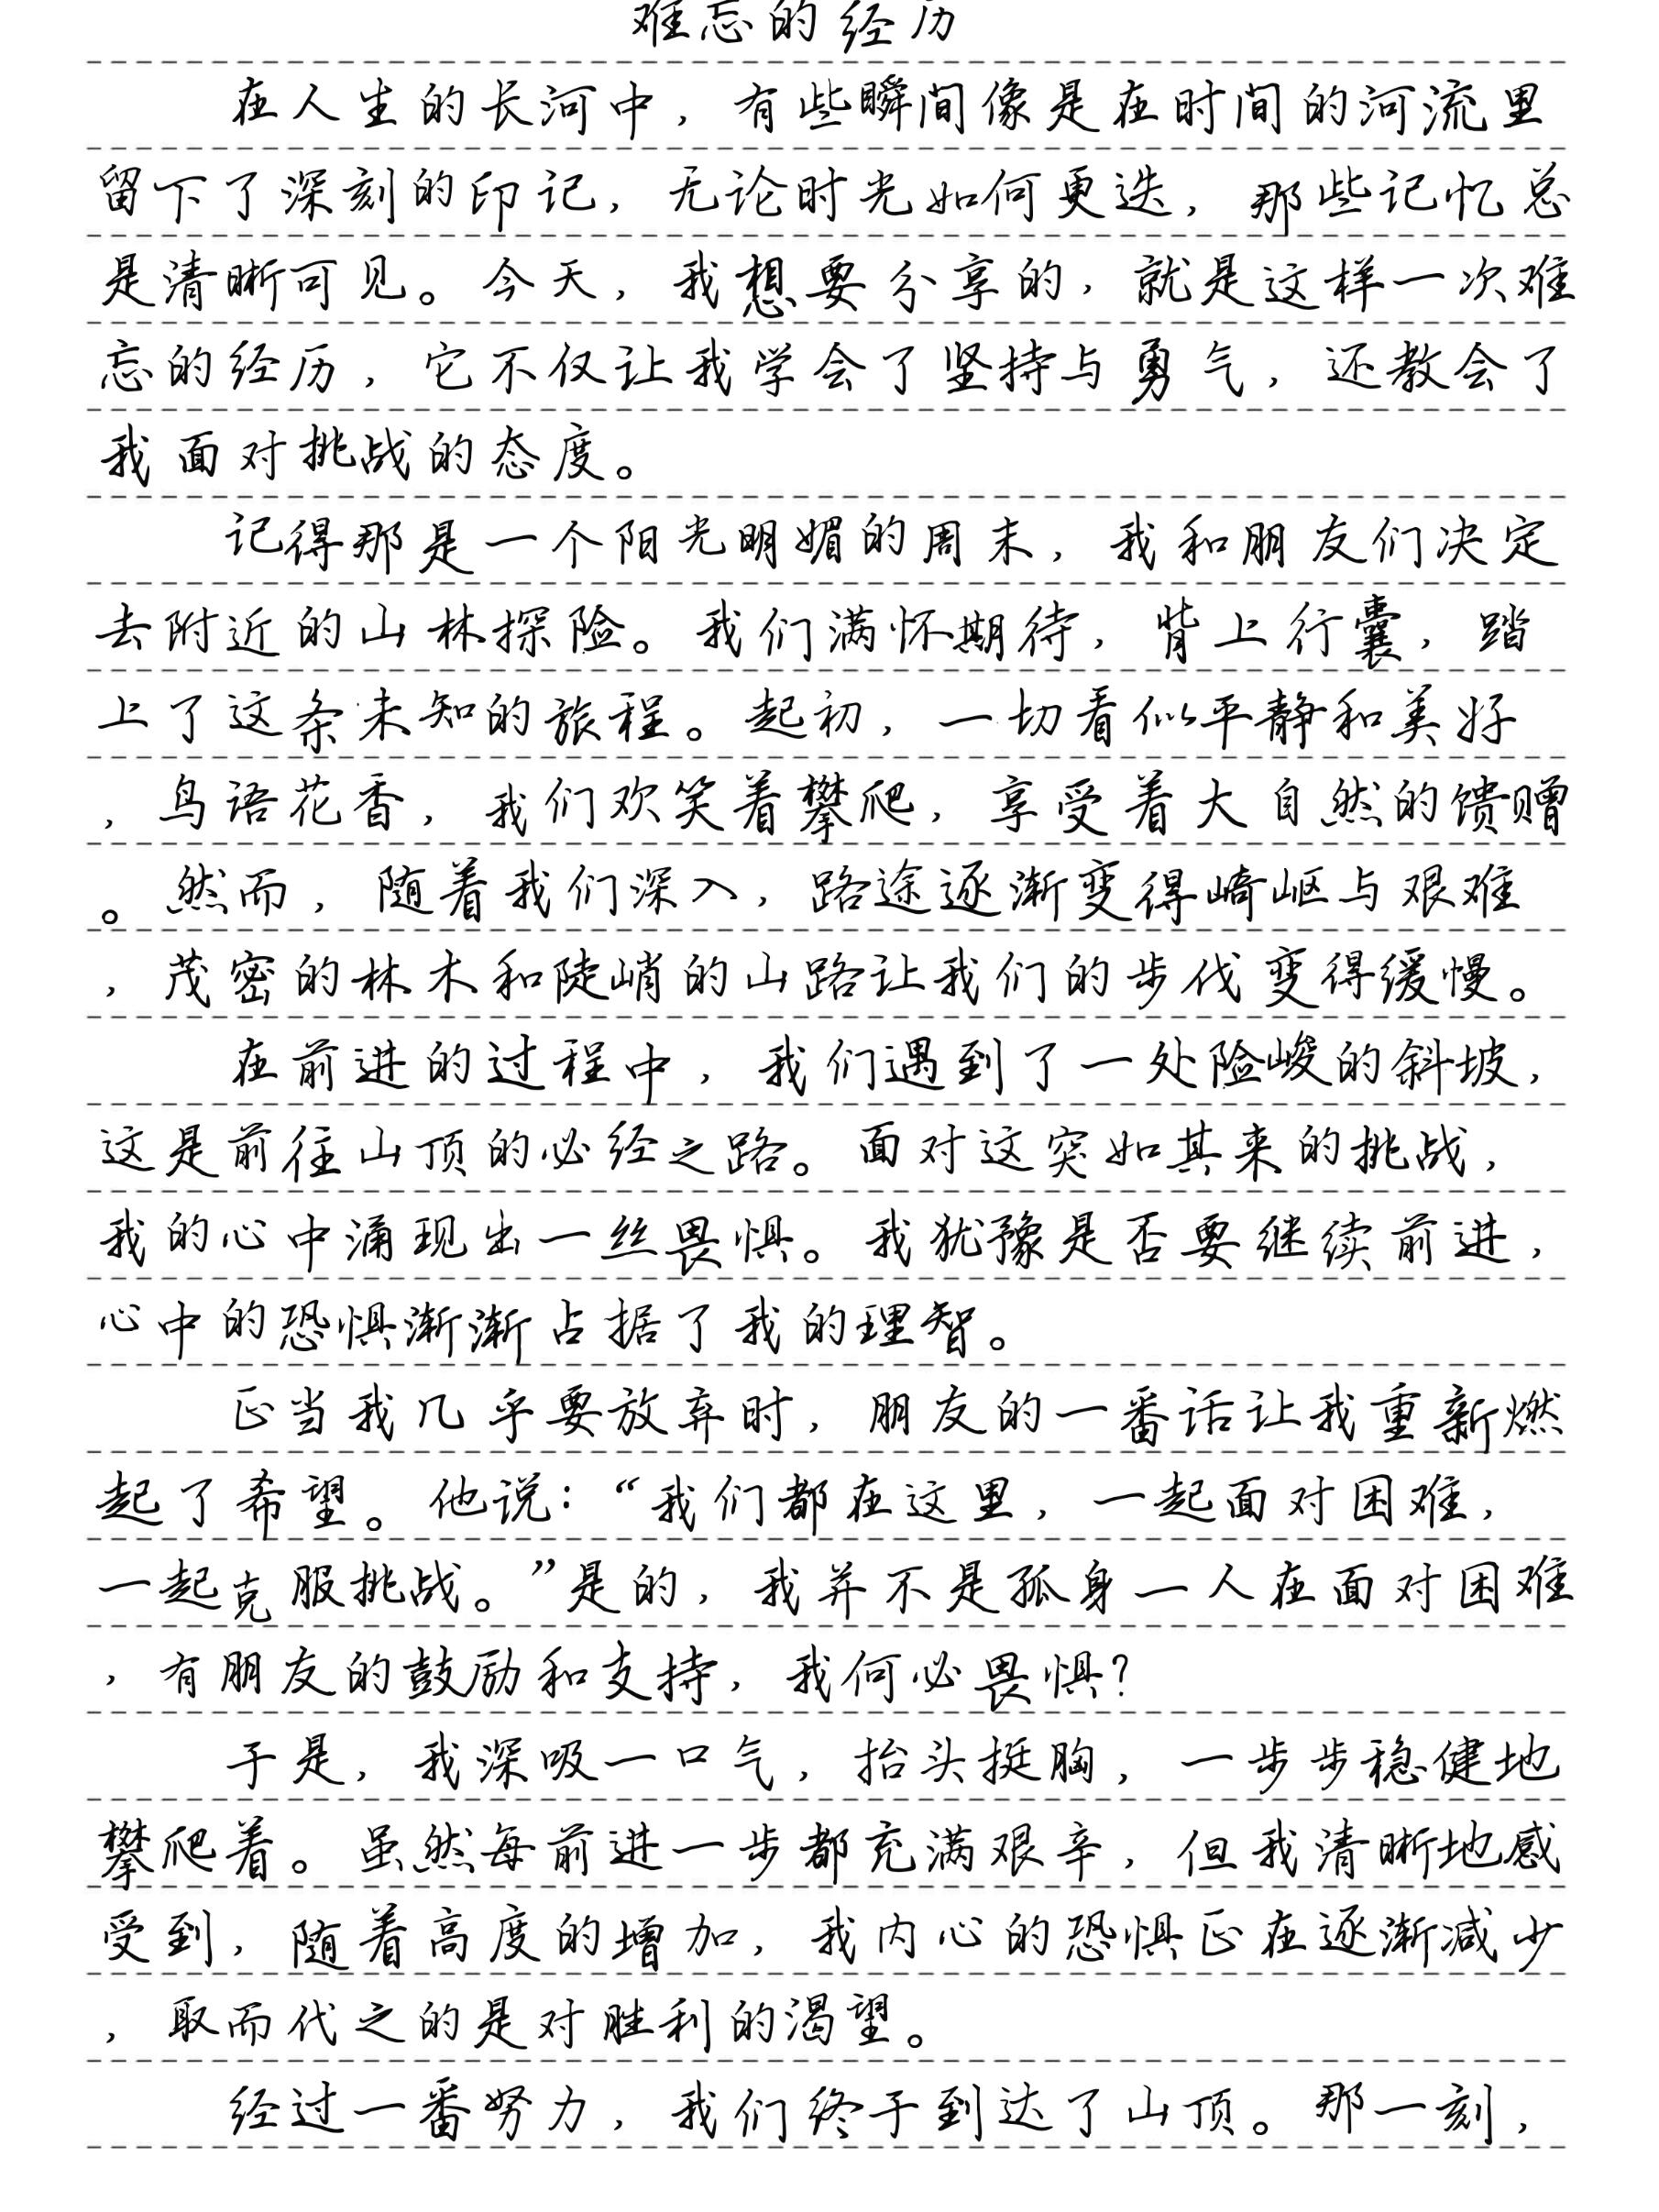 难忘的经历
在人生的长河中，有些瞬间像是在时间的河流里
留下了深刻的印记，无论时光如何更迭，那些记忆总
是清晰可见。今天，我想要分享的，就是这样一次难
忘的经历，它不仅让我学会了坚持与勇气，还教会了
我面对挑战的态度。
记得那是一个阳光明媚的周末，我和朋友们决定
去附近的山林探险。我们满怀期待，背上行囊，踏
上了这条未知的旅程。起初，一切看似平静和美好
，鸟语花香，我们欢笑着攀爬，享受着大自然的馈赠
。然而，随着我们深入，路途逐渐变得崎岖与艰难
，茂密的林木和陡峭的山路让我们的步伐变得缓慢。
在前进的过程中，我们遇到了一处险峻的斜坡，
这是前往山顶的必经之路。面对这突如其来的挑战，
我的心中涌现出一丝畏惧。我犹豫是否要继续前进，
心中的恐惧渐渐占据了我的理智。
正当我几乎要放弃时，朋友的一番话让我重新燃
起了希望。他说：“我们都在这里，一起面对困难，
一起克服挑战。”是的，我并不是孤身一人在面对困难
，有朋友的鼓励和支持，我何必畏惧？
于是，我深吸一口气，抬头挺胸，一步步稳健地
攀爬着。虽然每前进一步都充满艰辛，但我清晰地感
受到，随着高度的增加，我内心的恐惧正在逐渐减少
，取而代之的是对胜利的渴望。
经过一番努力，我们终于到达了山顶。那一刻，